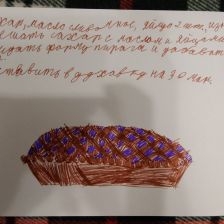 хар, масло сливочное, яйцо 2 шт,
шать сахар с маслом и яйцами
форму пирога и добавить
ставить в духовку на 30 мин.